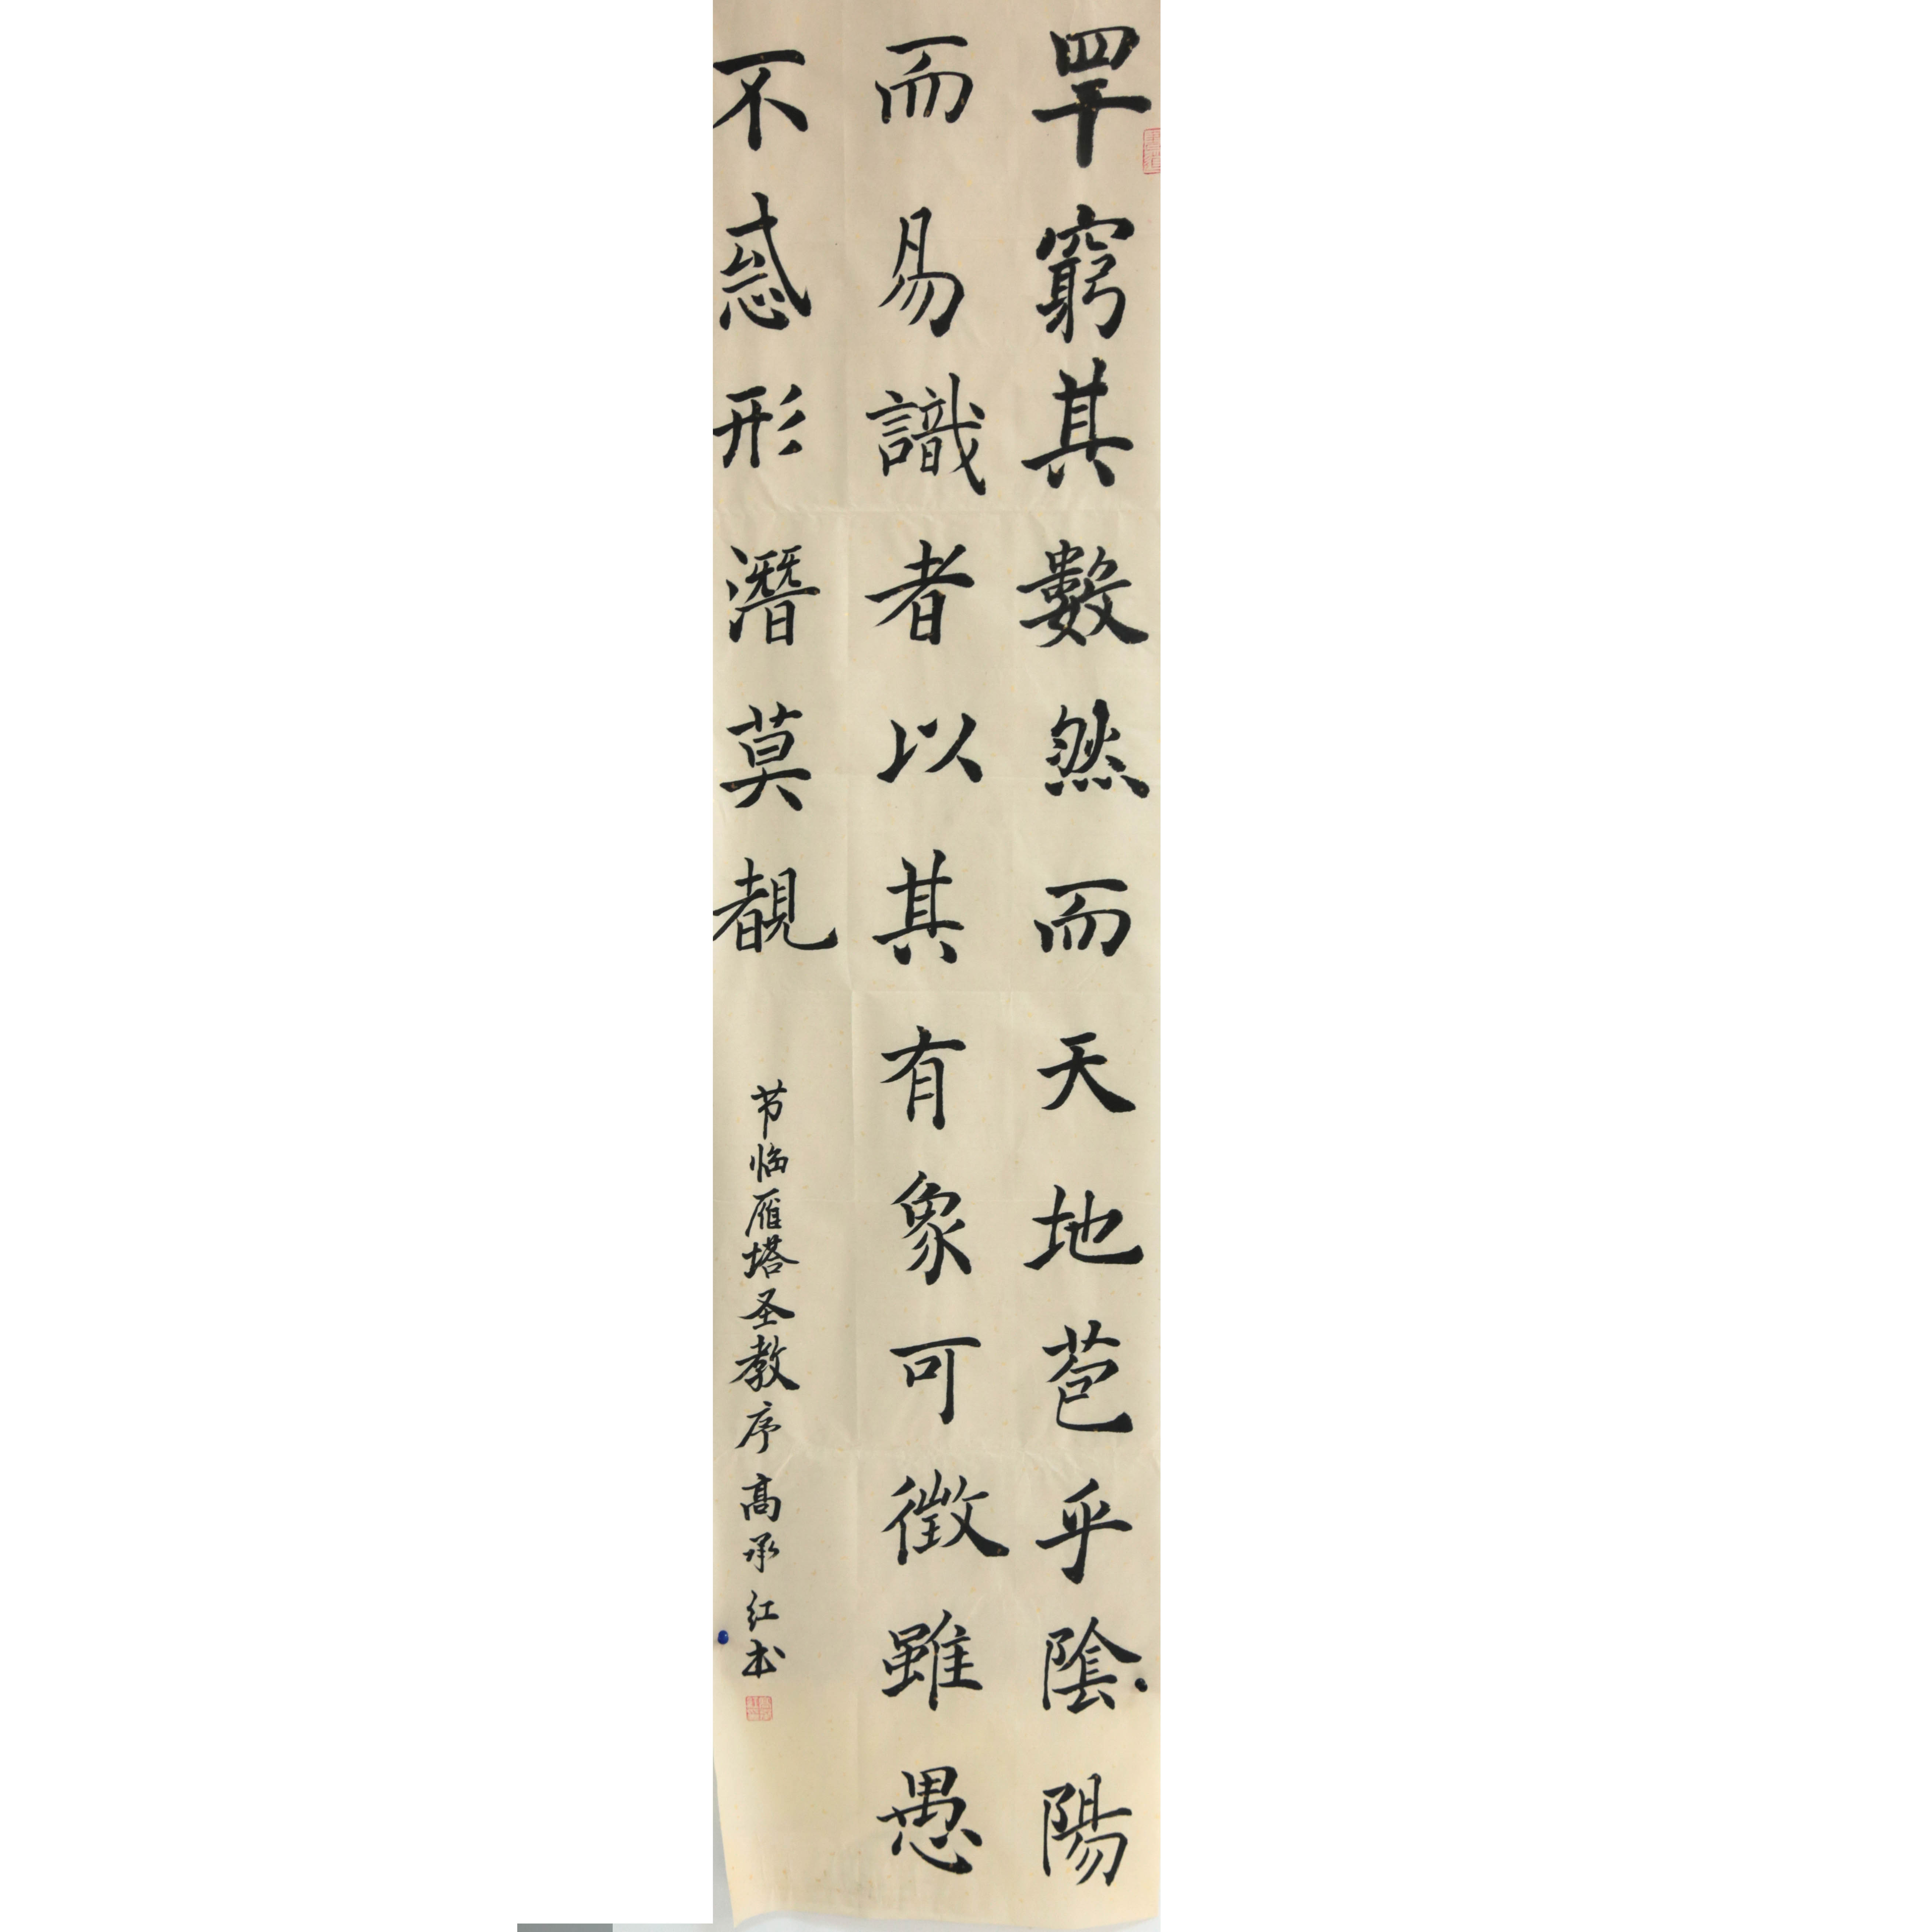 罕窮其數然而天地苞乎陰陽
而易識者以其有象可徵雖愚
不惑形潛莫覩
节临雁塔圣教序高承红书